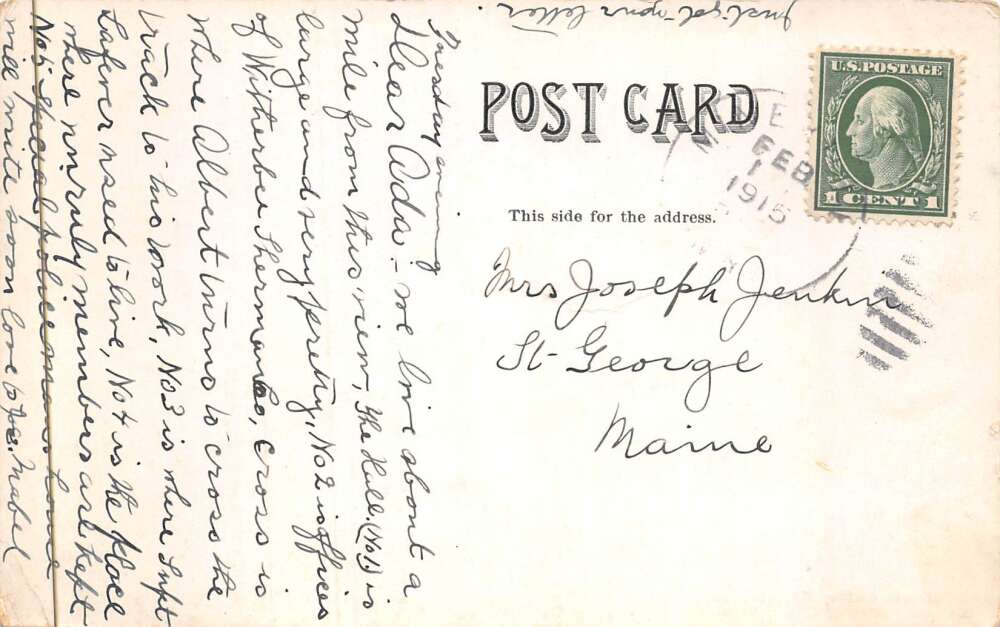 just got your letter.
Tuesday evening
Dear Ada:- we live about a
mile from this view, The Hall (No1) is
large and very pretty, No 2 is offices
of Witherbee Sherman Co, Cross is
where Albert turns to cross the
track to his work, No3 is where Supt
Lefever used to live, No 4 is the place
where unruly members are kept
No 5 special policemans home
will write soon love to Joe. Mabel
POST CARD
This side for the address.
FEB
1
1915
U.S. POSTAGE
1 CENT 1
Mrs Joseph Jenkin
St George
Maine